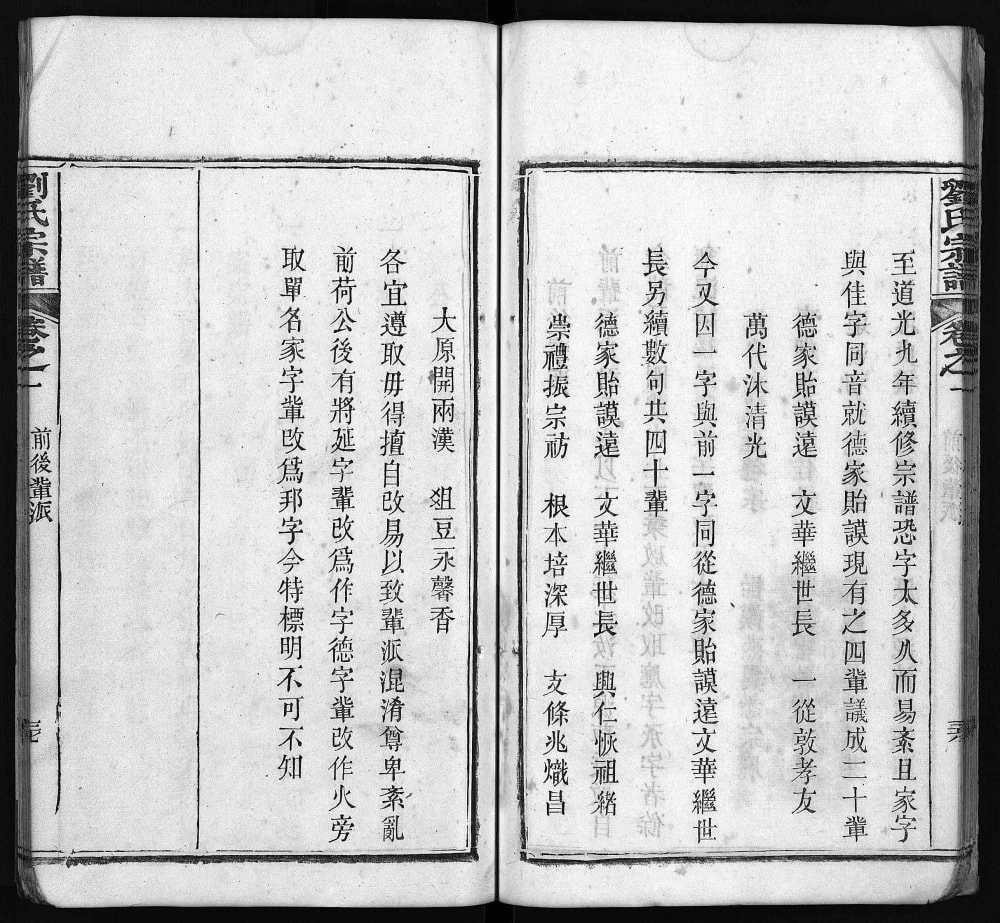 劉氏宗譜
卷之一
至道光九年續修宗譜恐字太多久而易紊且家字
與佳字同音就德家貽謨現有之四軰議成二十軰
德家貽謨遠 文華繼世長 一從敦孝友
萬代沐清光
今又因一字與前一字同從德家貽謨遠文華繼世
長另續數句共四十軰
德家貽謨遠 文華繼世長 興仁恢祖緒
崇禮振宗祊 根本培深厚 支條兆熾昌
大原開兩漢 俎豆永馨香
各宜遵取毋得擅自改易以致軰派混淆尊卑紊亂
前荷公後有將延字軰改爲作字德字軰改作火旁
取單名家字軰改爲邦字今特標明不可不知
劉氏宗譜
卷之一
前後軰派